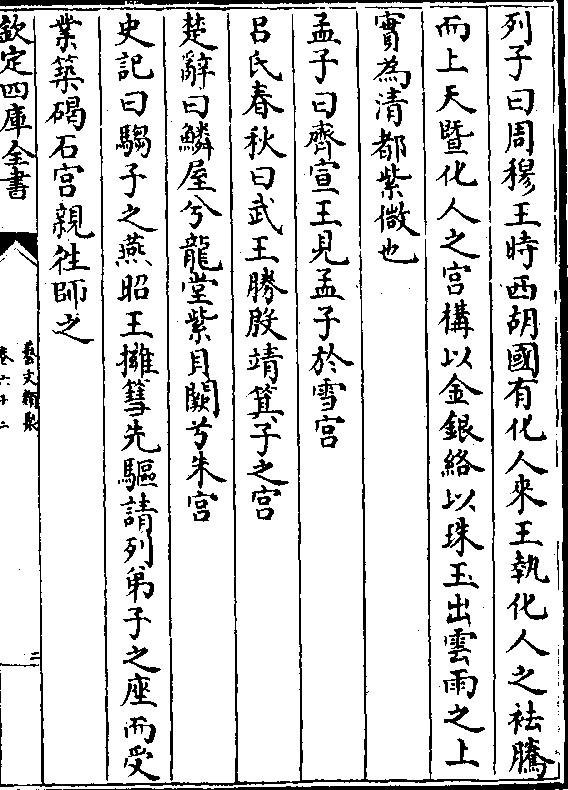 列子曰周穆王時西胡國有化人來王執化人之袪騰
而上天暨化人之宮構以金銀絡以珠玉出雲雨之上
實為清都紫微也
孟子曰齊宣王見孟子於雪宮
吕氏春秋曰武王勝殷靖箕子之宮
楚辭曰鱗屋兮龍堂紫貝闕兮朱宮
史記曰騶子之燕昭王擁篲先驅請列弟子之座而受
業築碣石宮親往師之
欽定四庫全書
藝文類聚
卷六十二
二